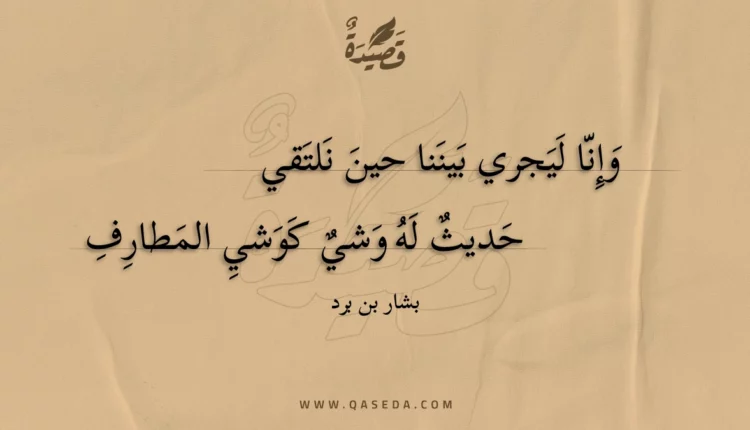 قَصِيدَةٌ
وَإِنّا لَيَجري بَينَنا حينَ نَلتَقي
حَديثٌ لَهُ وَشيٌ كَوَشيِ المَطارِفِ
بشار بن برد
WWW.QASEDA.COM